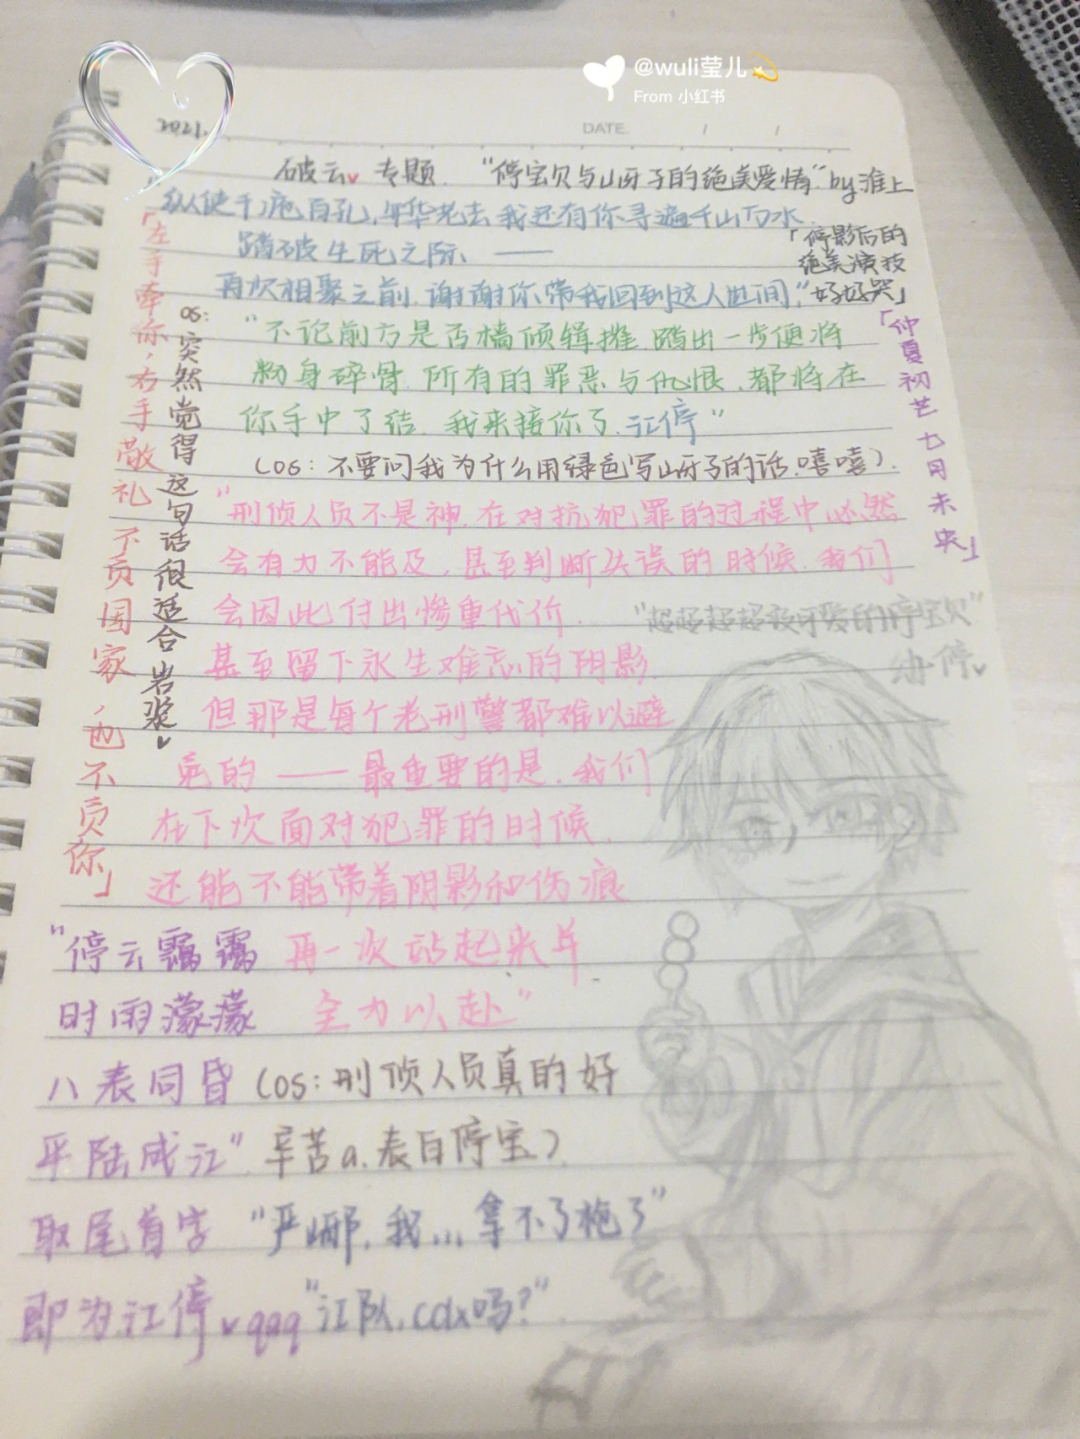 @wuli莹儿💫
From 小红书
2021.
DATE. / /
破云♥专题 "停宝贝与山牙子的绝美爱情" by淮上
纵使千疮百孔,年华老去,我还有你寻遍千山万水.
踏破生死之际、——
「停影后的
绝美演技
再次相聚之前,谢谢你带我回到这人世间."
好好哭」
"不论前方是否墙倾楫摧,踏出一步便将
粉身碎骨.所有的罪恶与仇恨,都将在
你手中了结.我来接你了.江停"
(os:不要问我为什么用绿色写山牙子的话.嘻嘻).
"刑侦人员不是神.在对抗犯罪的过程中必然
会有力不能及,甚至判断失误的时候.我们
会因此付出惨重代价.
甚至留下永生难忘的阴影.
但那是每个老刑警都难以避
免的——最重要的是.我们
在下次面对犯罪的时候.
还能不能带着阴影和伤痕
再一次站起来并
全力以赴"
「左手牵你,右手敬礼 不负国家,也不负你」
os:突然觉得这句话很适合岩浆♥
「仲夏初芒 七月未央」
"超超超超级可爱的停宝贝"
幼停♥
"停云霭霭
时雨濛濛
八表同昏
平陆成江"
(os:刑侦人员真的好
辛苦a.表白停宝)
取尾首字
即为江停♥qaq
"严峫,我...拿不了枪了"
"江队,cdx吗?"